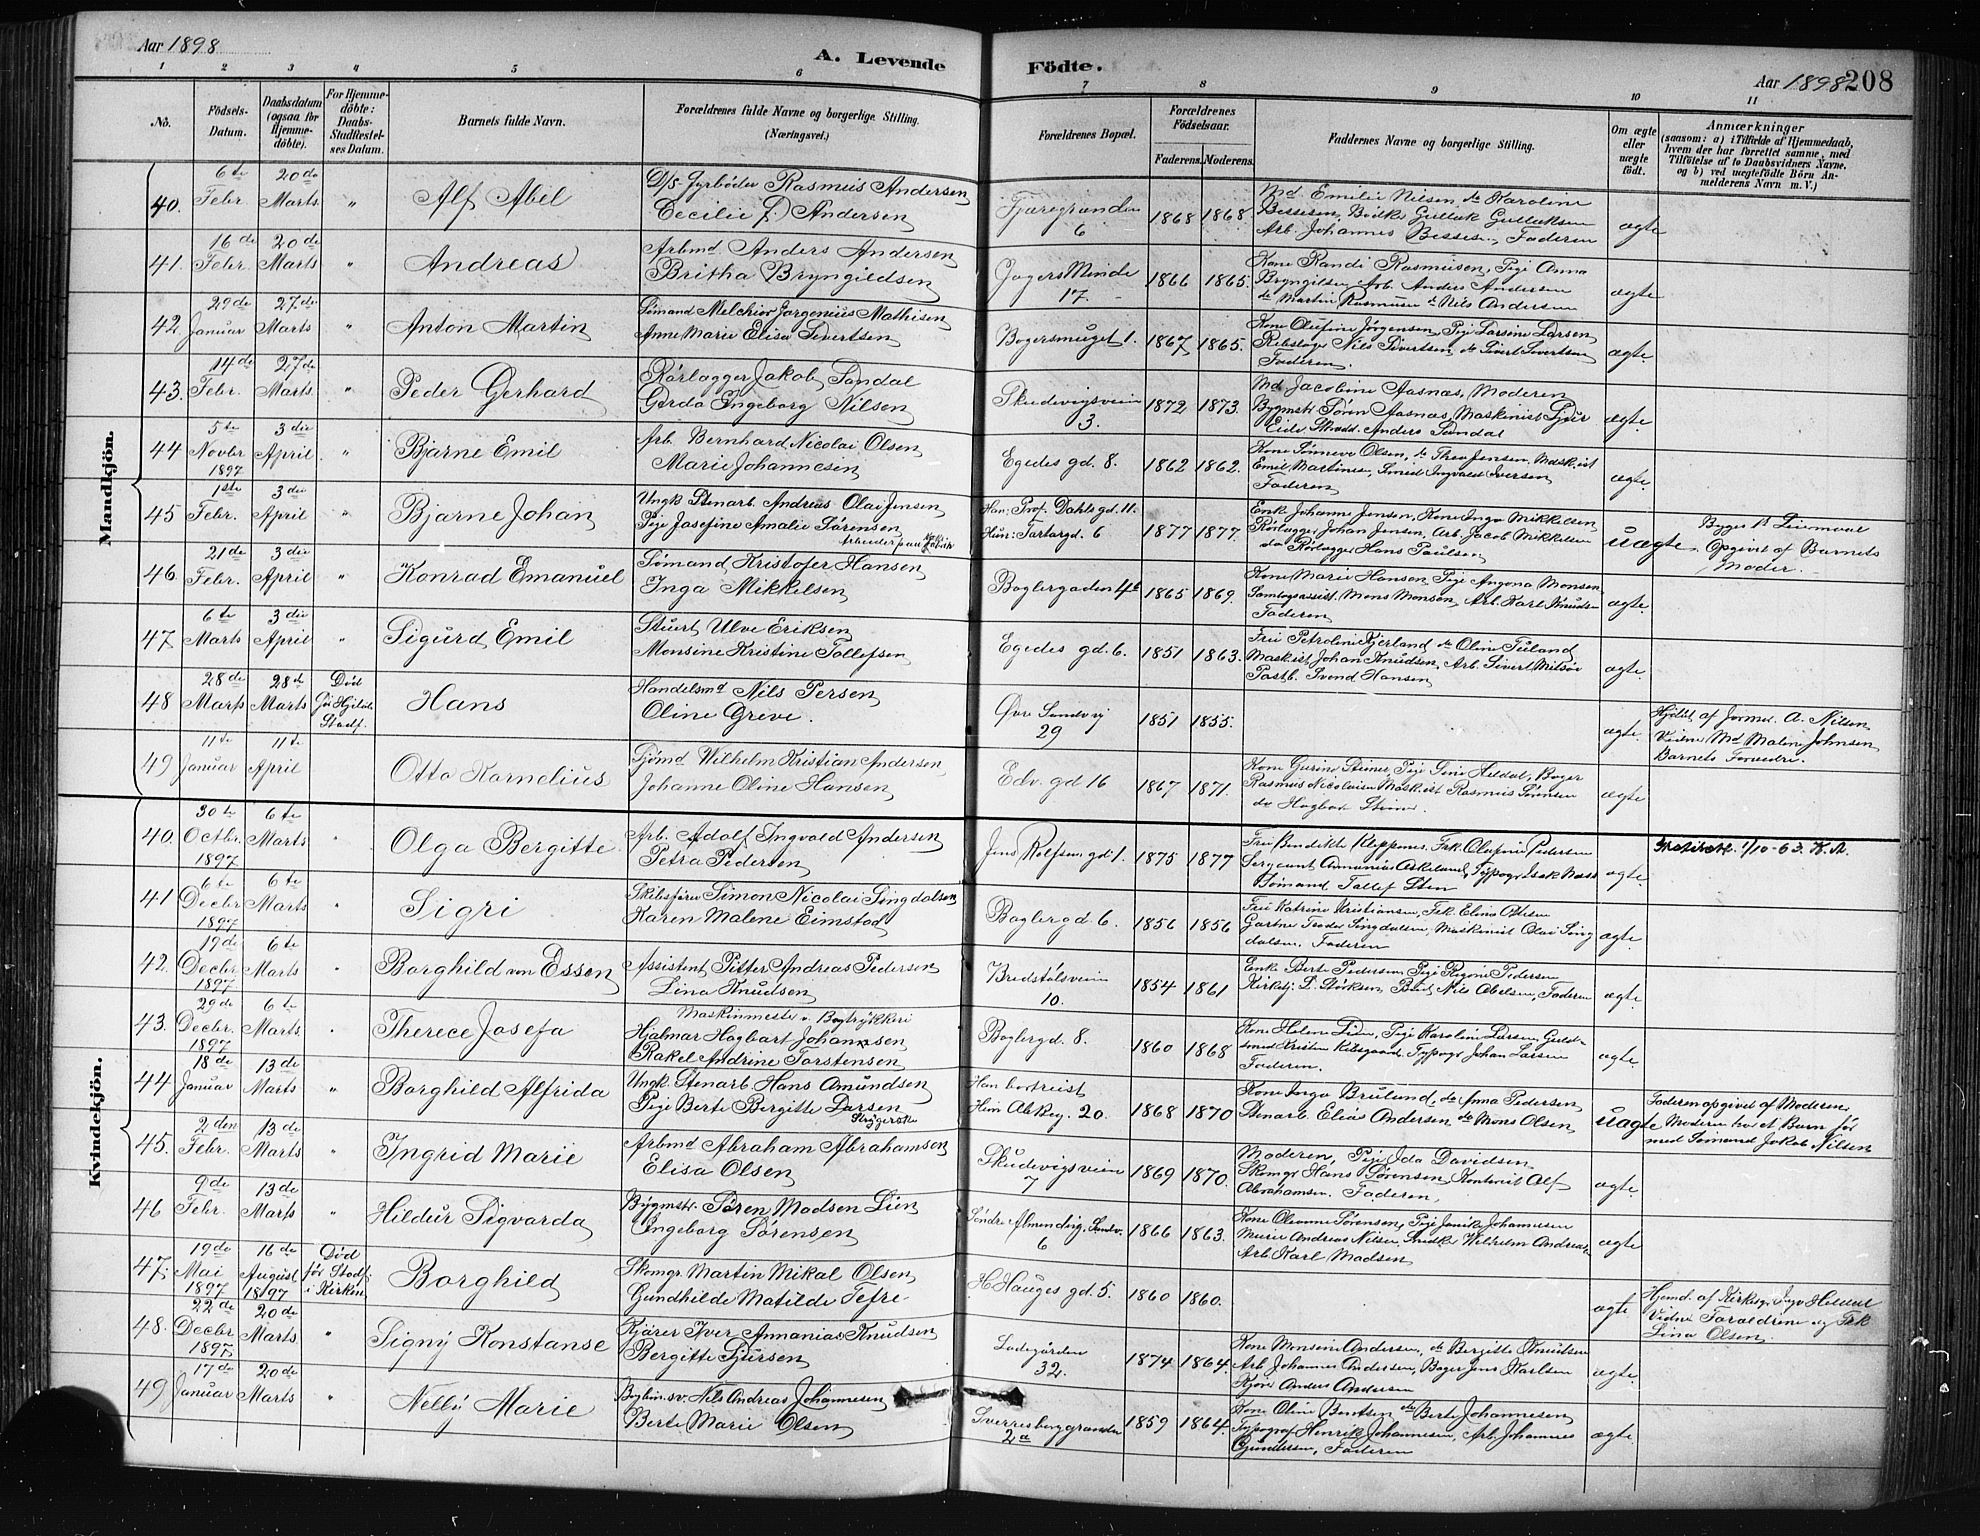 Aar 1898
A. Levende Födte.
Aar 1898 208
1 2 3 4 5 6 7 8 9 10 11
No.
Födsels-Datum.
Daabsdatum (ogsaa for Hjemme-döbte).
For Hjemme-döbte: Daabs-Stadfæstel-ses Datum.
Barnets fulde Navn.
Forældrenes fulde Navne og borgerlige Stilling. (Næringsvei.)
Forældrenes Bopæl.
Forældrenes Födselsaar.
Faderens. Moderens.
Faddernes Navne og borgerlige Stilling.
Om ægte eller uægte födt.
Anmærkninger
(saasom: a) i Tilfælde af Hjemmedaab, hvem der har forrettet samme, med Tilföielse af to Daabsvidners Navne, og b) ved uægtefödte Börn Anmelderens Navn m. V.)
Mandkjön.
40. 6te Febr 20de Marts " Alf Abel
D/s. Fyrböder Rasmus Andersen
Cecilie Andersen
6 1868 1868
Md Emilie Nilsen, do Karoline
Bessesen, Gullak Gullaksen
Arb. Johannes Bessesen, Faderen
ægte
41. 16de Febr. 20de Marts " Andreas
Arbmd Anders Andersen
Britha Bryngildsen
Jægers Minde 17. 1866 1865.
Kone Randi Rasmusen, Pige Anna
Bryngildsen Arb. Anders Andersen
do Martin Rasmusen do Nils Andersen
ægte
42. 29de Januar 27de Marts " Anton Martin
Sømand Melchior Jørgenius Mathisen
Anne Marie Elisa Sivertsen
Bøgersmuget 1. 1867 1865.
Kone Olufine Jørgensen, Pige Larsine Larsen
Rebslager Nils Sivertsen, do Sivert Sivertsen
Faderen.
ægte
43. 14de Febr. 27de Marts. " Peder Gerhard
Rørlægger Jakob Sandal
Gerda Ingeborg Nilsen
Skudevigsveien 3. 1872 1873.
Md Jacobine Aasnæs, Moderen
Bygmstr Søren Aasnæs, Maskinist Sjur
Eide, Skrædd. Anders Sandal
ægte
44 5te Novbr 1897 3die April. " Bjarne Emil
Arb. Bernhard Nicolai Olsen
Marie Johannesen
Egedes gd. 8. 1862 1862.
Kone Sønneve Olsen, do Thea Jensen, Maskist
Emil Martinsen, Smed Ingvald Iversen
Faderen
ægte.
45 1ste Febr. 3die April " Bjarne Johan
Ungk. Stenarb. Andreas Olai Jensen
Pige Josefine Amalie Sørensen
Han: Prof. Dahls gd. 11.
Hun: Tartargd. 6 1877 1877.
Enke Johanne Jensen, Kone Inga Mikkelsen
Rørlægger Johan Jensen, Arb. Jacob Mikkelsen
do Rørlægger Hans Paulsen
uægte.
Begges 1ste Leiermaal
Opgivet af Barnets
Moder.
46. 21de Febr. 3die April " Konrad Emanuel
Sømand Kristofer Hansen
Inga Mikkelsen
Boglergaden 4b 1865 1869.
Kone Marie Hansen, Pige Angona Monsen
Mons Monsen, Arb. Karl Knudsen
Faderen
ægte
47. 6te Marts 3die April " Sigurd Emil
Stuert Ulve Eriksen
Monsine Kristine Tollefsen
Egedes gd. 6. 1851 1863.
Fru Petroline Kjerland, do Oline
Maskist Johan Knudsen, Arb. Sivert
Postb. Svend Hansen
ægte
48 28de Marts 28de Marts Død før Hjdaabs Stadf. Hans
Handelsmd Nils Persen
Oline Greve.
Øvre Sandvig 29 1851 1855.
ægte.
Hjdbt. af Jormd. A. Nilsen
Vidne Md Malene Johnsen
Barnets Forældre.
49 11te Januar 11te April Otto Kornelius
Sjømd Wilhelm Kristian Andersen
Johanne Oline Hansen
Edv. gd 16 1867 1871.
Kone Gurine Steiner, Pige Sina Heldal, Bager
Rasmus Nicolaisen Maskist Rasmus Sørensen
do Hagbart
ægte
Kvindekjön.
40. 30te Octbr. 1897 6te Marts " Olga Bergitte
Arb. Adolf Ingvald Andersen
Petra Pedersen
Jens Rolfsens gd. 1. 1875 1877
Fru Bendikte Kleppenes, Frk. Olufine Pedersen
Sergeant Ammanias Askeland, Typogr. Isak
Sømand Tollef Sten
ægte.
1/10-63. K.A.
41 6te Decbr 1897 6te Marts " Sigri
Skibsfører Simon Nicolai Singdalsen
Karen Malene Eimstad
Boglergd. 6. 1856 1856
Fru Katrine Kristiansen, Frk. Elina Olsen
Gartner Teodor Singdalsen, Maskinist Olai Sing
dalsen, Faderen
ægte
42. 19de Decbr. 1897 6te Marts " Borghild von Essen
Assistent Pitter Andreas Pedersen
Lina Knudsen
Bredstølsveien 10. 1854 1861
Enke Berte Pedersen, Pige Regine Pedersen
Kirkesj. L. Størksen, Bud Nils Abelsen, Faderen
ægte
43. 29de Decbr. 1897 6te Marts. " Therece Josefa
Maskinmester v. Bogtrykkeri
Hjalmar Hagbart Johannesen
Rakel Andrine Torstensen
Boglergd. 8. 1860 1868
Kone Helene Lien, Pige Karoline Larsen Guld-
smed Kristen Kibsgaard, Typogr Johan Larsen
Faderen.
ægte
44 18de Januar 13de Marts " Borghild Alfrida
Ungk. Stenarb. Hans Amundsen
Pige Berte Bergitte Larsen
Strygerske
Han bortreist
Hun Abkey. 20. 1868 1870
Kone Inga Bruland, do Anna Pedersen
Stenarb. Elias Andersen do Mons Olsen
uægte
Faderen opgivet af Moderen,
Moderen havt et Barn før
med Sømand Jakob Nilsen
45. 2den Febr. 13de Marts " Ingrid Marie
Arbmd Abraham Abrahamsen
Elisa Olsen
Skudevigsveien 7 1869 1870.
Moderen, Pige Ida Davidsen
Skomgr Hans Sørensen, Kontorist Alf
Abrahamsen. Faderen
ægte
46 9de Febr. 13de Marts " Hildur Sigvarda
Bygmstr. Søren Madsen Lien
Ingeborg Sørensen
Søndre Almending. Sandv. 6 1866 1863.
Kone Oleanne Sørensen, Pige Janike Johannesen
Murer Andreas Nilsen, Snedker Wilhelm Andreas
Arb. Karl Madsen
ægte
47. 19de Mai 1897 16de August 1897 Død før Stadf. i Kirken Borghild
Skomgr. Martin Mikal Olsen
Gundhilde Matilde Tefre
H. Hauges gd. 5. 1860 1860.
ægte
Hjemd. af Kirkesgr. Inga Heldal
Vidne Forældrene og Frk
Lina Olsen.
48. 22de Decbr 1897 20de Marts " Signy Konstanse
Kjører Iver Annanias Knudsen
Bergitte Sjursen
Ladegården 32. 1874 1864.
Kone Monsine Andersen, do Bergitte Knudsen
Arb Johannes Andersen, Bager Jens Karlsen
Kjører Anders Andersen
ægte
49 17de Januar 20de Marts " Nelly Marie
Bogbin. sv. Nils Andreas Johannesen
Berte Marie Olsen
Sverresborggranden 2a 1859 1864.
Kone Oline Bentsen do Berte Johannesen
Typograf Henrik Johannesen, Arb. Johannes
Gundersen, Faderen
ægte